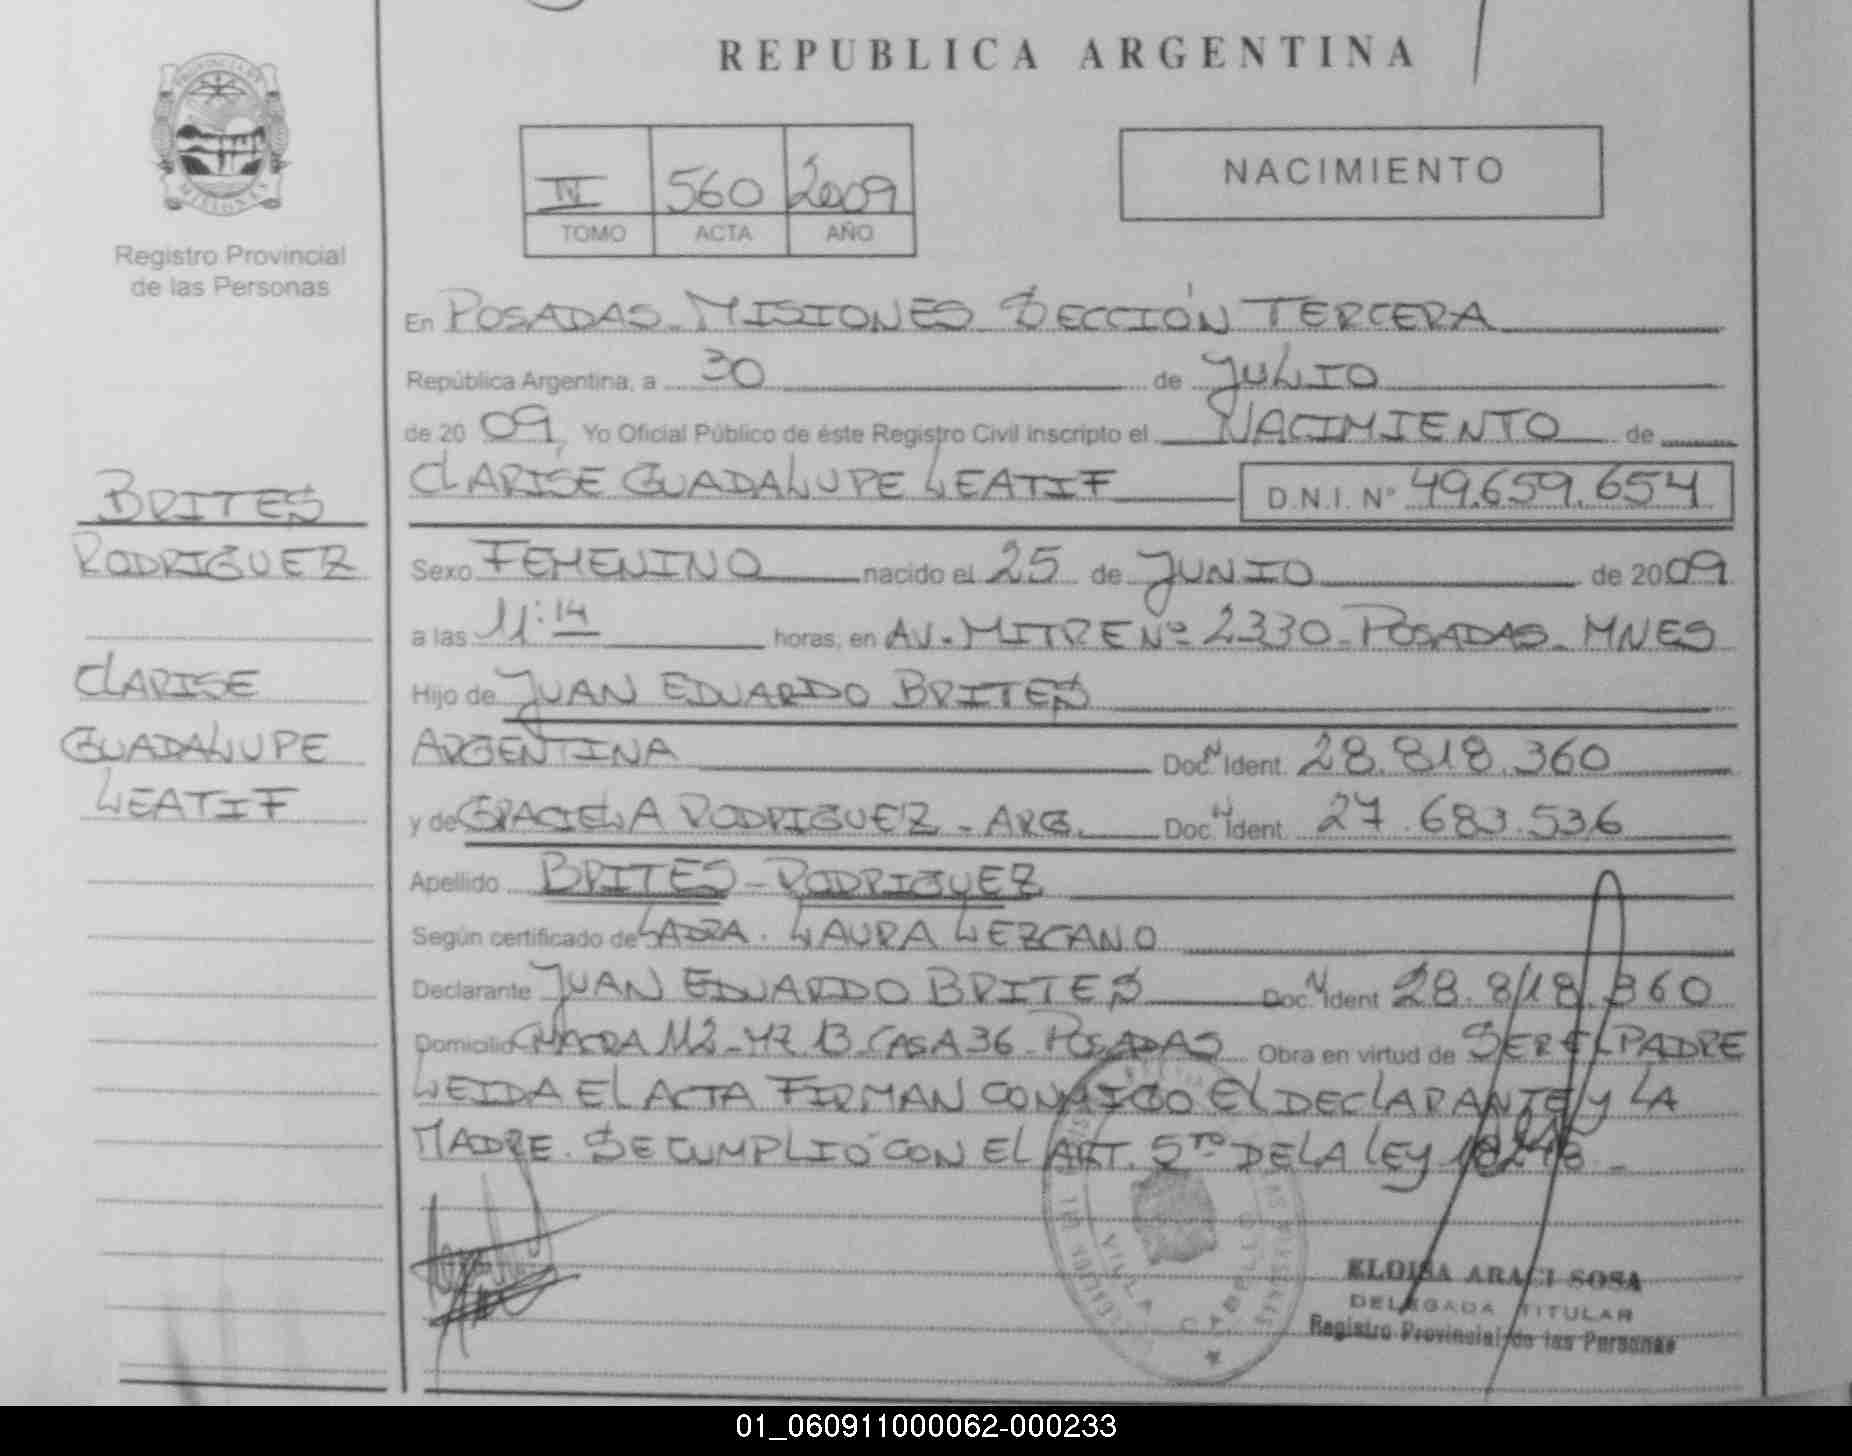 REPUBLICA ARGENTINA
PROVINCIA DE
MISIONES
Registro Provincial
de las Personas
IV 560 2009
TOMO ACTA AÑO
NACIMIENTO
En POSADAS - MISIONES SECCIÓN TERCERA
República Argentina, a 30 de JULIO
de 2009, Yo Oficial Público de éste Registro Civil inscripto el NACIMIENTO de
CLARISE GUADALUPE LEATIF D.N.I. Nº 49.659.654
BRITES
RODRIGUEZ
CLARISE
GUADALUPE
LEATIF
Sexo FEMENINO nacido el 25 de JUNIO de 2009
a las 11:14 horas, en AV. MITRE Nº 2330 - POSADAS - MNES
Hijo de JUAN EDUARDO BRITES
ARGENTINA Doc. N Ident. 28.818.360
y de GRACIELA RODRIGUEZ - ARG. Doc. N Ident. 27.683.536
Apellido BRITES - RODRIGUEZ
Según certificado de LADRA. LAURA LEZCANO
Declarante JUAN EDUARDO BRITES Doc. N Ident 28.818.360
Domicilio CHACRA 112 - MZ 13 - CASA 36 - POSADAS Obra en virtud de SER EL PADRE
LEIDA EL ACTA FIRMAN CONMIGO EL DECLARANTE y LA
MADRE. SE CUMPLIÓ CON EL ART. 5TO DE LA LEY 18248 -
VILLA CABELLO
ELOISA ARACI SOSA
DELEGADA TITULAR
Registro Provincial de las Personas
01_060911000062-000233